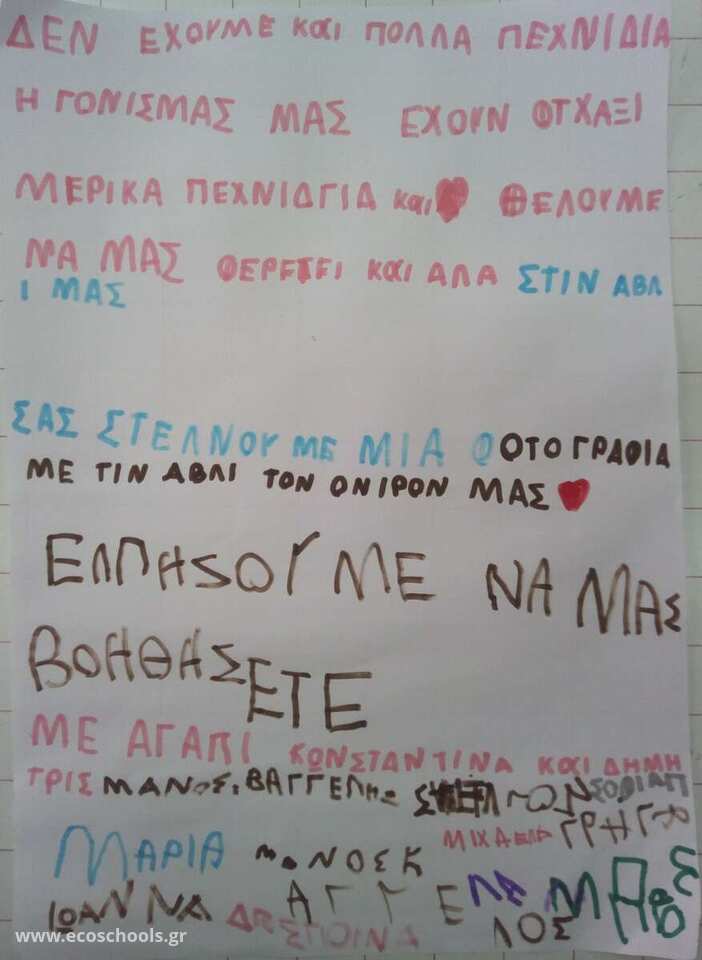 ΔΕΝ ΕΧΟΥΜΕ και ΠΟΛΛΑ ΠΕΧΝΙΔΙΑ
Η ΓΟΝΙΣΜΑΣ ΜΑΣ ΕΧΟΥΝ ΦΤΧΑΞΙ
ΜΕΡΙΚΑ ΠΕΧΝΙΔΓΙΑ και ΘΕΛΟΥΜΕ
ΝΑ ΜΑΣ ΦΕΡΕΤΕΙ και ΑΛΑ ΣΤΙΝ ΑΒΛ
Ι ΜΑΣ
ΣΑΣ ΣΤΕΛΝΟΥΜΕ ΜΙΑ ΦΟΤΟΓΡΑΦΙΑ
ΜΕ ΤΙΝ ΑΒΛΙ ΤΟΝ ΟΝΙΡΟΝ ΜΑΣ
ΕΛΠΗΣΟΥΜΕ ΝΑ ΜΑΣ
ΒΟΗΘΗΣΕΤΕ
ΜΕ ΑΓΑΠΙ ΚΩΝΣΤΑΝΤΙΝΑ ΚΑΙ ΔΗΜΗ
ΤΡΙΣ ΜΑΝΟΣ, ΒΑΓΓΕΛΗΣ ΣΟΦΙΑΠ
ΜΙΧΑΕΛΑ
ΜΑΡΙΑ ΜΑΝΟΣΚ
ΙΩΑΝΝΑ ΑΓΓΕΛΟΣ
ΔΕΣΠΟΙΝΑ
www.ecoschools.gr